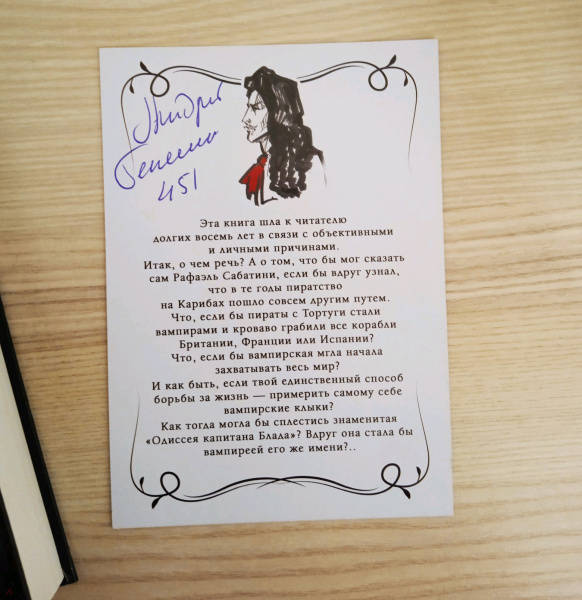 451
Эта книга шла к читателю
долгих восемь лет в связи с объективными
и личными причинами.
Итак, о чем речь? А о том, что бы мог сказать
сам Рафаэль Сабатини, если бы вдруг узнал,
что в те годы пиратство
на Карибах пошло совсем другим путем.
Что, если бы пираты с Тортуги стали
вампирами и кроваво грабили все корабли
Британии, Франции или Испании?
Что, если бы вампирская мгла начала
захватывать весь мир?
И как быть, если твой единственный способ
борьбы за жизнь — примерить самому себе
вампирские клыки?
Как тогда могла бы сплестись знаменитая
«Одиссея капитана Блада»? Вдруг она стала бы
вампиреей его же имени?..